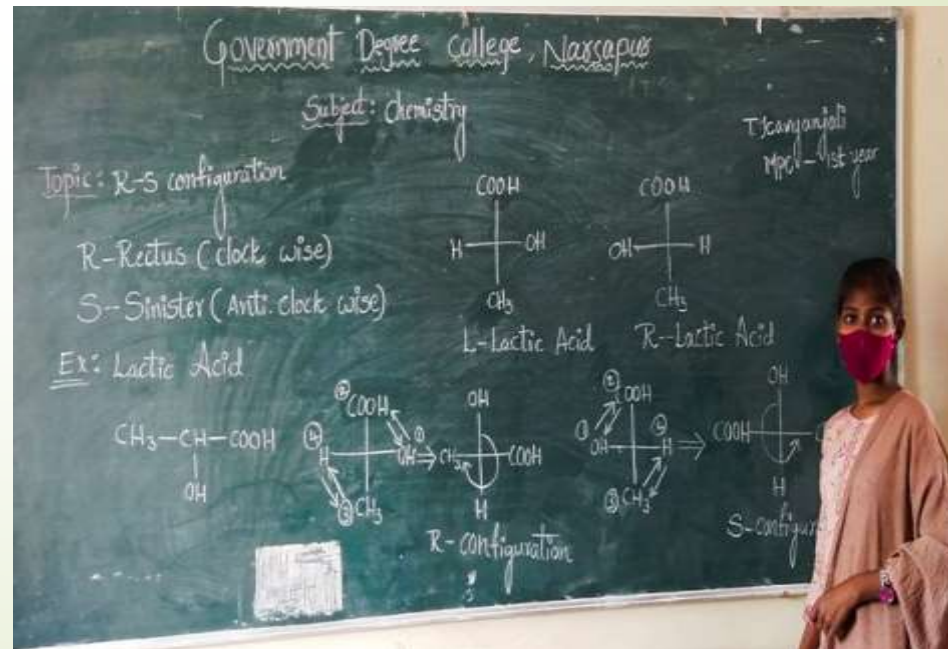 Government Degree College, Narsapur
Subject: Chemistry
MPC - 1st year
Topic: R-S configuration
R-Rectus (clock wise)
S-Sinister (Anti. clock wise)
Ex: Lactic Acid
CH3-CH-COOH
OH
COOH
H OH
CH3
L-Lactic Acid
COOH
OH H
CH3
R-Lactic Acid
② COOH
④ H OH ①
③ CH3
OH
CH3 COOH
H
R-configuration
② COOH
① OH H ④
③ CH3
OH
COOH C
H
S-configur